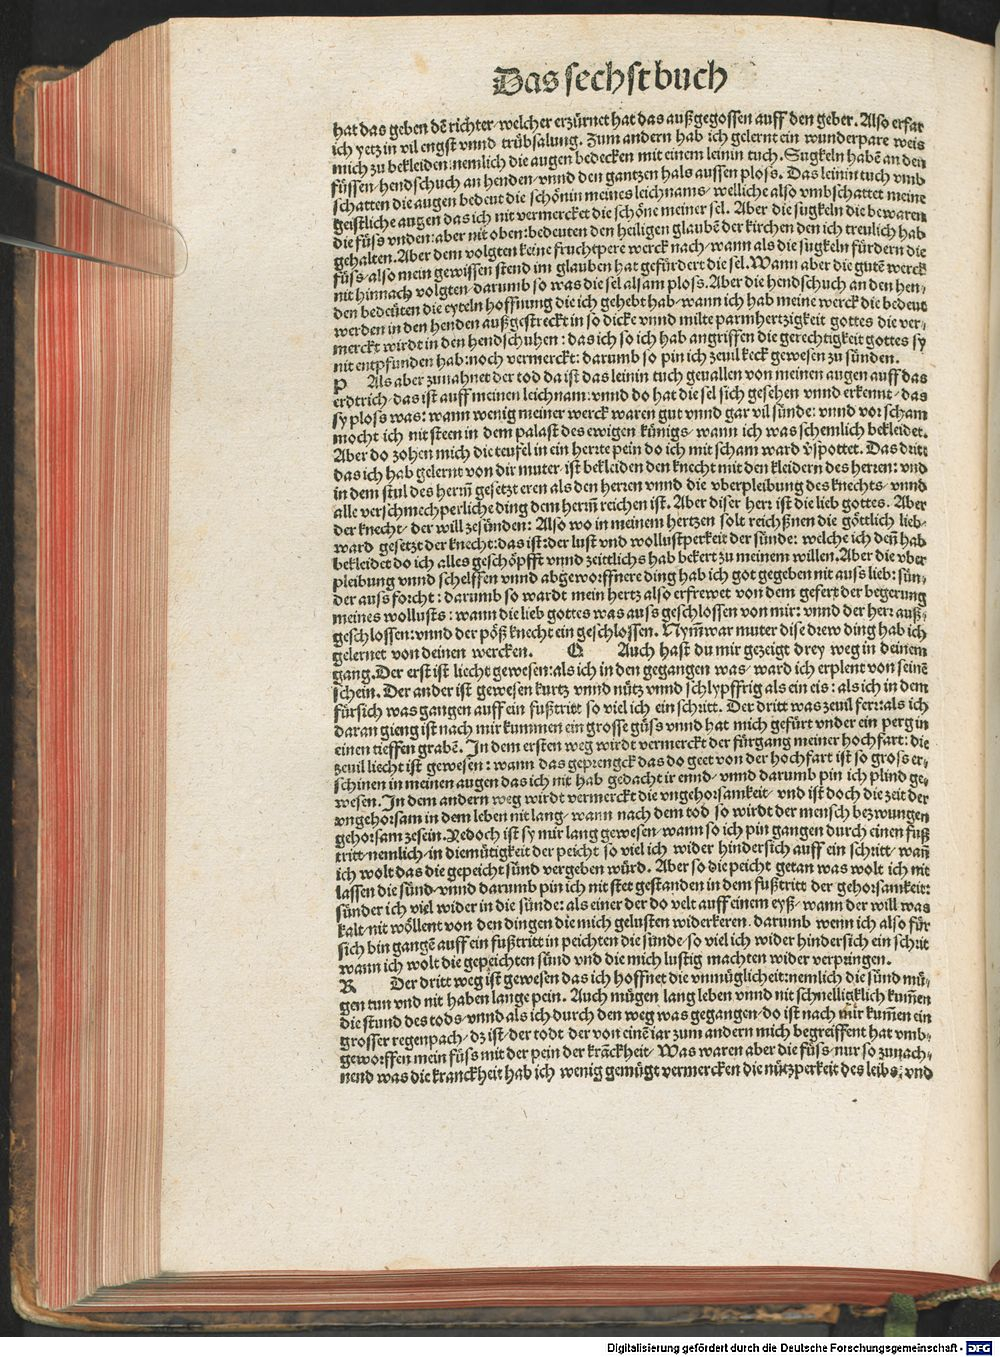 Das sechst buch
hat das geben dẽ richter/ welcher erzürnet hat das außgegossen auff den geber. Also erfar
ich yetz in vil engst vnnd trübsalung. Zum andern hab ich gelernt ein wunderpare weis
mich zu bekleiden: nemlich die augen bedecken mit einem leinin tuch. Sugkeln habẽ an den
füssen/ hendschuch an henden/ vnnd den gantzen hals aussen ploss. Das leinin tuch vmb
schatten die augen bedeut die schönin meines leichnams/ welliche also vmbschattet meine
geistliche augen das ich nit vermercket die schöne meiner sel. Aber die sugkeln die bewaren
die füss vnden: aber nit oben: bedeuten den heiligen glaubẽ der kirchen den ich treulich hab
gehalten. Aber dem volgten keine fruchtpere werck nach/ wann als die sugkeln fürdern die
füss/ also mein gewissen stend im glauben hat gefürdert die sel. Wann aber die gutẽ werck
nit hinnach volgten/ darumb so was die sel alsam ploss. Aber die hendschuch an den hen⸗
den bedeüten die eyteln hoffnung die ich gehebt hab/ wann ich hab meine werck die bedeut
werden in den henden außgestreckt in so dicke vnnd milte parmhertzigkeit gottes die ver⸗
merckt wirdt in den hendschuhen: das ich so ich hab angriffen die gerechtigkeit gottes sy
nit entpfunden hab: noch vermerckt: darumb so pin ich zeuil keck gewesen zu sünden.
P Als aber zunahnet der tod da ist das leinin tuch geuallen von meinen augen auff das
erdtrich/ das ist auff meinen leichnam: vnnd do hat die sel sich gesehen vnnd erkennt/ das
sy ploss was: wann wenig meiner werck waren gut vnnd gar vil sünde: vnnd vor scham
mocht ich nit steen in dem palast des ewigen künigs/ wann ich was schemlich bekleidet.
Aber do zohen mich die teufel in ein herrte pein do ich mit scham ward v̈spottet. Das dritt
das ich hab gelernt von dir muter/ ist bekleiden den knecht mit den kleidern des herren: vnd
in dem stul des herrn̄ gesetzt eren als den herren vnnd die vberpleibung des knechts/ vnnd
alle verschmechperliche ding dem herrn̄ reichen ist. Aber diser herr ist die lieb gottes. Aber
der knecht/ der will zesünden: Also wo in meinem hertzen solt reichßnen die göttlich lieb/
ward gesetzt der knecht: das ist: der lust vnd wollustperkeit der sünde: welche ich den̄ hab
bekleidet do ich alles geschöpfft vnnd zeittlichs hab bekert zu meinem willen. Aber die vber
pleibung vnnd schelffen vnnd abgeworffnere ding hab ich got gegeben nit auss lieb: sün⸗
der auss forcht: darumb so wardt mein hertz also erfrewet von dem gefert der begerung
meines wollusts: wann die lieb gottes was auss geschlossen von mir: vnnd der herr auß⸗
geschlossen: vnnd der pöß knecht ein geschlossen. Nym̄war muter dise drew ding hab ich
gelernet von deinen wercken. Q Auch hast du mir gezeigt drey weg in deinem
gang. Der erst ist liecht gewesen: als ich in den gegangen was/ ward ich erplent von seinẽ
schein. Der ander ist gewesen kurtz vnnd nütz vnnd schlypffrig als ein eis: als ich in dem
fürsich was gangen auff ein fußtritt so viel ich ein schritt. Der dritt was zeuil ferr: als ich
daran gieng ist nach mir kummen ein grosse güss vnnd hat mich gefürt vnder ein perg in
einen tieffen grabẽ. In dem ersten weg wirdt vermerckt der fürgang meiner hochfart: die
zeuil liecht ist gewesen: wann das geprengck das do geet von der hochfart ist so gross er⸗
schinen in meinen augen das ich nit hab gedacht ir ennd/ vnnd darumb pin ich plind ge⸗
wesen. In dem andern weg wirdt vermerckt die vngehorsamkeit/ vnd ist doch die zeit der
vngehorsam in dem leben nit lang/ wann nach dem tod so wirdt der mensch bezwungen
gehorsam zesein. Yedoch ist sy mir lang gewesen/ wann so ich pin gangen durch einen fuß
tritt/ nemlich/ in diemütigkeit der peicht so viel ich wider hindersich auff ein schritt/ wan̄
ich wolt das die gepeicht sünd vergeben würd. Aber so die peicht getan was wolt ich nit
lassen die sünd/ vnnd darumb pin ich nit stet gestanden in dem fußtritt der gehorsamkeit:
sünder ich viel wider in die sünde: als einer der do velt auff einem eyß/ wann der will was
kalt/ nit wöllent von den dingen die mich gelusten widerkeren. darumb wenn ich also für
sich bin gangẽ auff ein fußtritt in peichten die sünde/ so viel ich wider hindersich ein schrit
wann ich wolt die gepeichten sünd vnd die mich lustig machten wider verpringen.
R Der dritt weg ist gewesen das ich hoffnet die vnmüglicheit: nemlich die sünd mü⸗
gen tun vnd nit haben lange pein. Auch mügen lang leben vnnd nit schnelligklich kum̄en
die stund des tods/ vnnd als ich durch den weg was gegangen/ do ist nach mir kum̄en ein
grosser regenpach/ dz ist/ der todt der von einẽ iar zum andern mich begreiffent hat vmb⸗
geworffen mein füss mit der pein der krãckheit/ Was waren aber die füss/ nur so zunach⸗
nend was die kranckheit hab ich wenig gemügt vermercken die nützperkeit des leibs: vnd
Digitalisierung gefördert durch die Deutsche Forschungsgemeinschaft - DFG